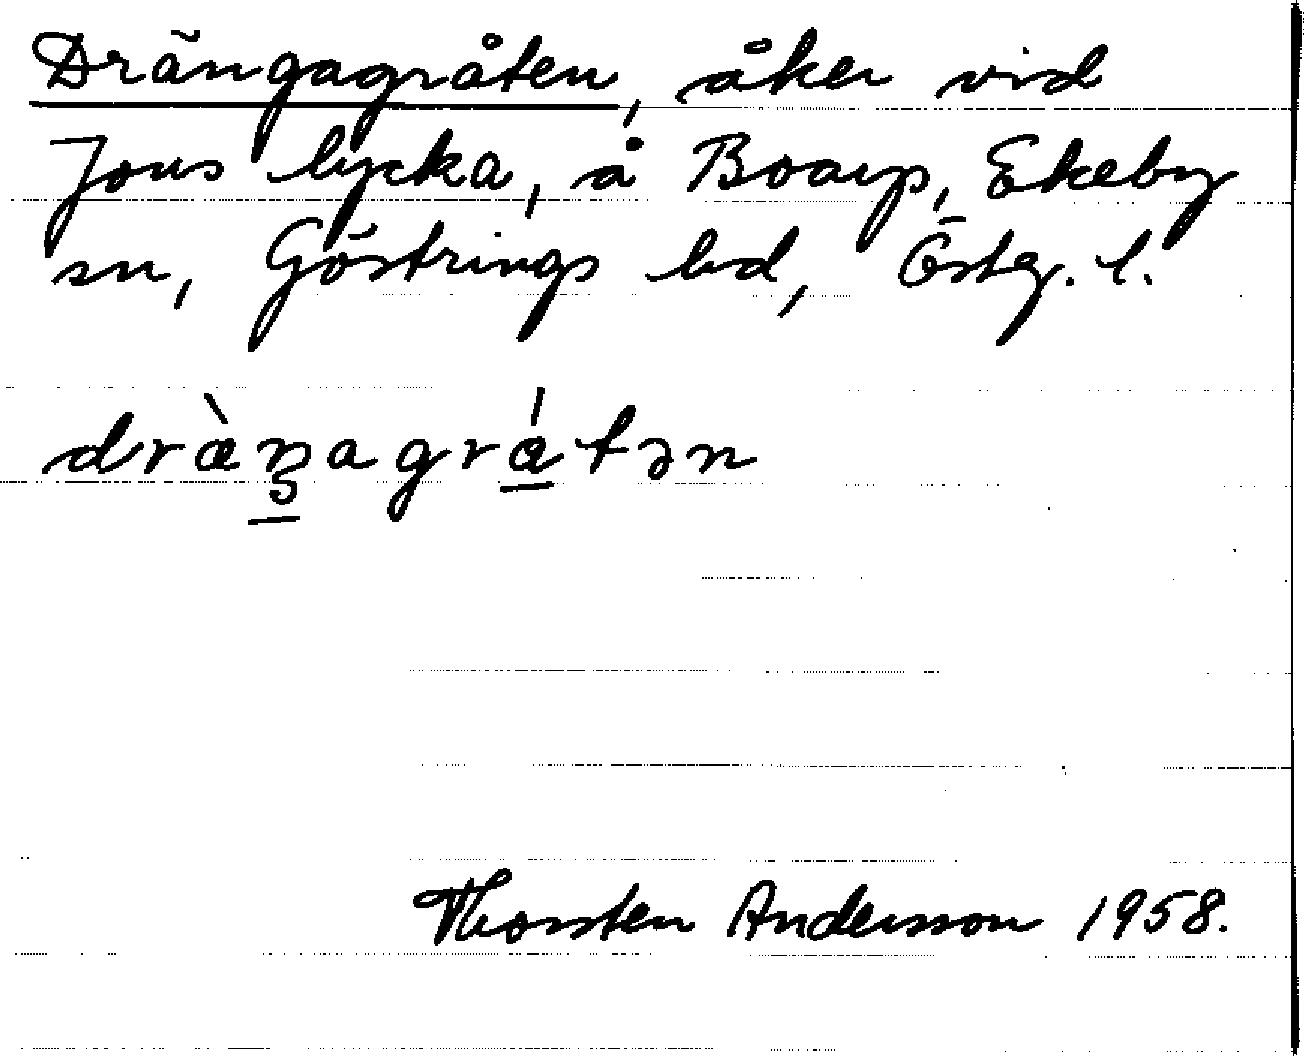 Drängagråten, åker vid
Jons lycka, å Boarp, Ekeby
sn, Göstrings hd, Östg. l.
dràŋagrátən
Thorsten Andersson 1958.